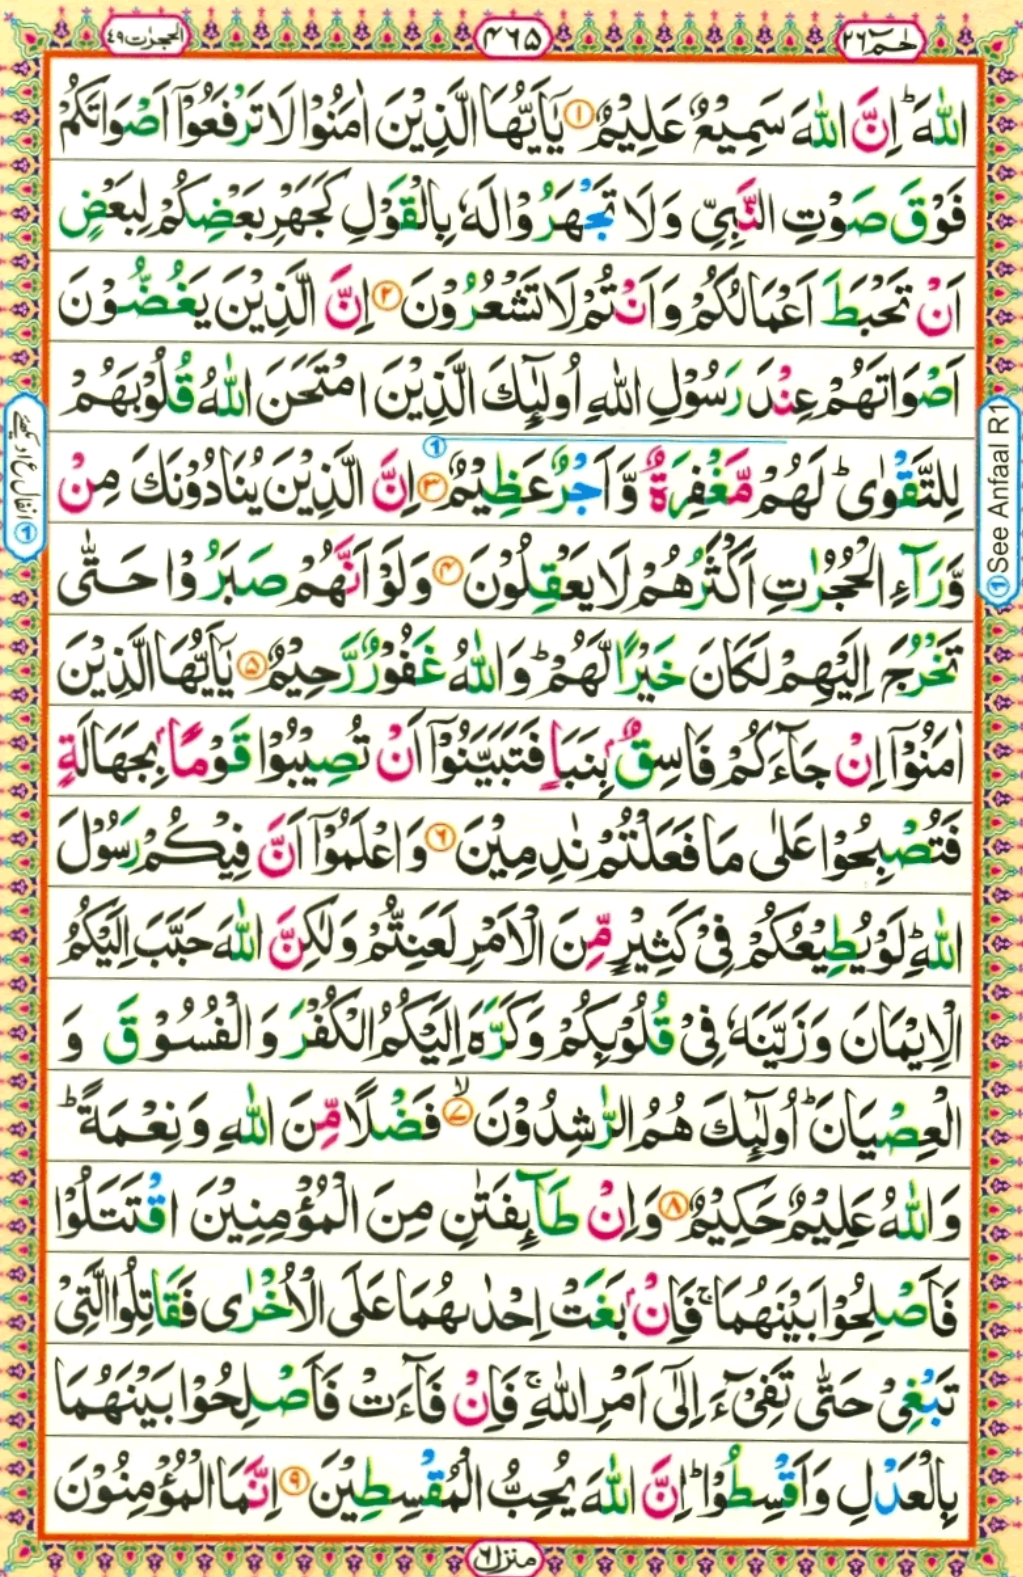 الحجرٰت ٤٩
٤٦٥
حٰمٓ ٢٦
اللّٰهَ ؕ اِنَّ اللّٰهَ سَمِيْعٌ عَلِيْمٌ ۝۱ يٰۤاَيُّهَا الَّذِيْنَ اٰمَنُوْا لَا تَرْفَعُوْۤا اَصْوَاتَكُمْ
فَوْقَ صَوْتِ النَّبِيِّ وَلَا تَجْهَرُوْا لَهٗ بِالْقَوْلِ كَجَهْرِ بَعْضِكُمْ لِبَعْضٍ
اَنْ تَحْبَطَ اَعْمَالُكُمْ وَاَنْتُمْ لَا تَشْعُرُوْنَ ۝۲ اِنَّ الَّذِيْنَ يَغُضُّوْنَ
اَصْوَاتَهُمْ عِنْدَ رَسُوْلِ اللّٰهِ اُولٰٓئِكَ الَّذِيْنَ امْتَحَنَ اللّٰهُ قُلُوْبَهُمْ
لِلتَّقْوٰى ؕ لَهُمْ مَّغْفِرَةٌ وَّاَجْرٌ عَظِيْمٌ ۝۳ اِنَّ الَّذِيْنَ يُنَادُوْنَكَ مِنْ
وَّرَآءِ الْحُجُرٰتِ اَكْثَرُهُمْ لَا يَعْقِلُوْنَ ۝۴ وَلَوْ اَنَّهُمْ صَبَرُوْا حَتّٰى
تَخْرُجَ اِلَيْهِمْ لَكَانَ خَيْرًا لَّهُمْ ؕ وَاللّٰهُ غَفُوْرٌ رَّحِيْمٌ ۝۵ يٰۤاَيُّهَا الَّذِيْنَ
اٰمَنُوْۤا اِنْ جَآءَكُمْ فَاسِقٌۢ بِنَبَاٍ فَتَبَيَّنُوْۤا اَنْ تُصِيْبُوْا قَوْمًۢا بِجَهَالَةٍ
فَتُصْبِحُوْا عَلٰى مَا فَعَلْتُمْ نٰدِمِيْنَ ۝۶ وَاعْلَمُوْۤا اَنَّ فِيْكُمْ رَسُوْلَ
اللّٰهِ ؕ لَوْ يُطِيْعُكُمْ فِيْ كَثِيْرٍ مِّنَ الْاَمْرِ لَعَنِتُّمْ وَلٰكِنَّ اللّٰهَ حَبَّبَ اِلَيْكُمُ
الْاِيْمَانَ وَزَيَّنَهٗ فِيْ قُلُوْبِكُمْ وَكَرَّهَ اِلَيْكُمُ الْكُفْرَ وَالْفُسُوْقَ وَ
الْعِصْيَانَ ؕ اُولٰٓئِكَ هُمُ الرّٰشِدُوْنَ ۝۷ۙ فَضْلًا مِّنَ اللّٰهِ وَنِعْمَةً ؕ
وَاللّٰهُ عَلِيْمٌ حَكِيْمٌ ۝۸ وَاِنْ طَآئِفَتٰنِ مِنَ الْمُؤْمِنِيْنَ اقْتَتَلُوْا
فَاَصْلِحُوْا بَيْنَهُمَا ۚ فَاِنْۢ بَغَتْ اِحْدٰىهُمَا عَلَى الْاُخْرٰى فَقَاتِلُوا الَّتِيْ
تَبْغِيْ حَتّٰى تَفِيْٓءَ اِلٰٓى اَمْرِ اللّٰهِ ۚ فَاِنْ فَآءَتْ فَاَصْلِحُوْا بَيْنَهُمَا
بِالْعَدْلِ وَاَقْسِطُوْا ؕ اِنَّ اللّٰهَ يُحِبُّ الْمُقْسِطِيْنَ ۝۹ اِنَّمَا الْمُؤْمِنُوْنَ
منزل ٦
① See Anfaal R1